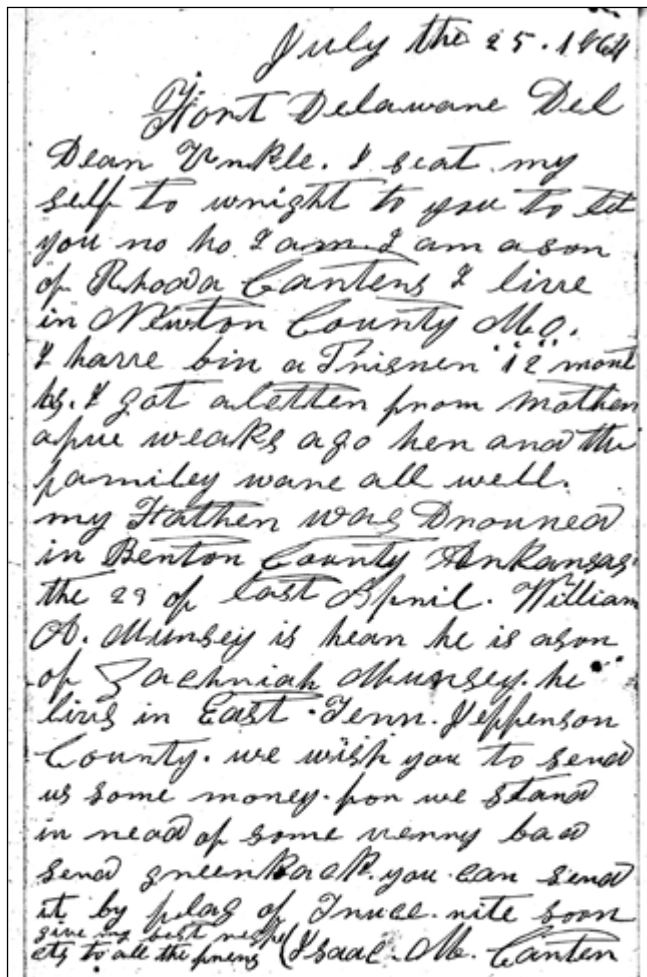 July the 25. 1864
Fort Delaware Del
Dear Unkle. I seat my
self to wright to you to let
you no ho I am. I am a son
of Rhoda Carters I live
in Newton County Mo.
I harve bin a Prisner "12" mont
hs. I got a letter from Mother
a fue weaks ago her and the
familey ware all well.
my Father was Drouned
in Benton County Arkansas.
the 29 of last April. William
A. Munsey is hear he is a son
of Zachriah Munsey. he
livs in East. Tenn. Jefferson
County. we wish you to send
us some money. for we stand
in nead of some verry bad
send greenback. you can send
it by flag of Truce. rite soon
give my best respe
cts to all the friens (Isaac. M. Carter